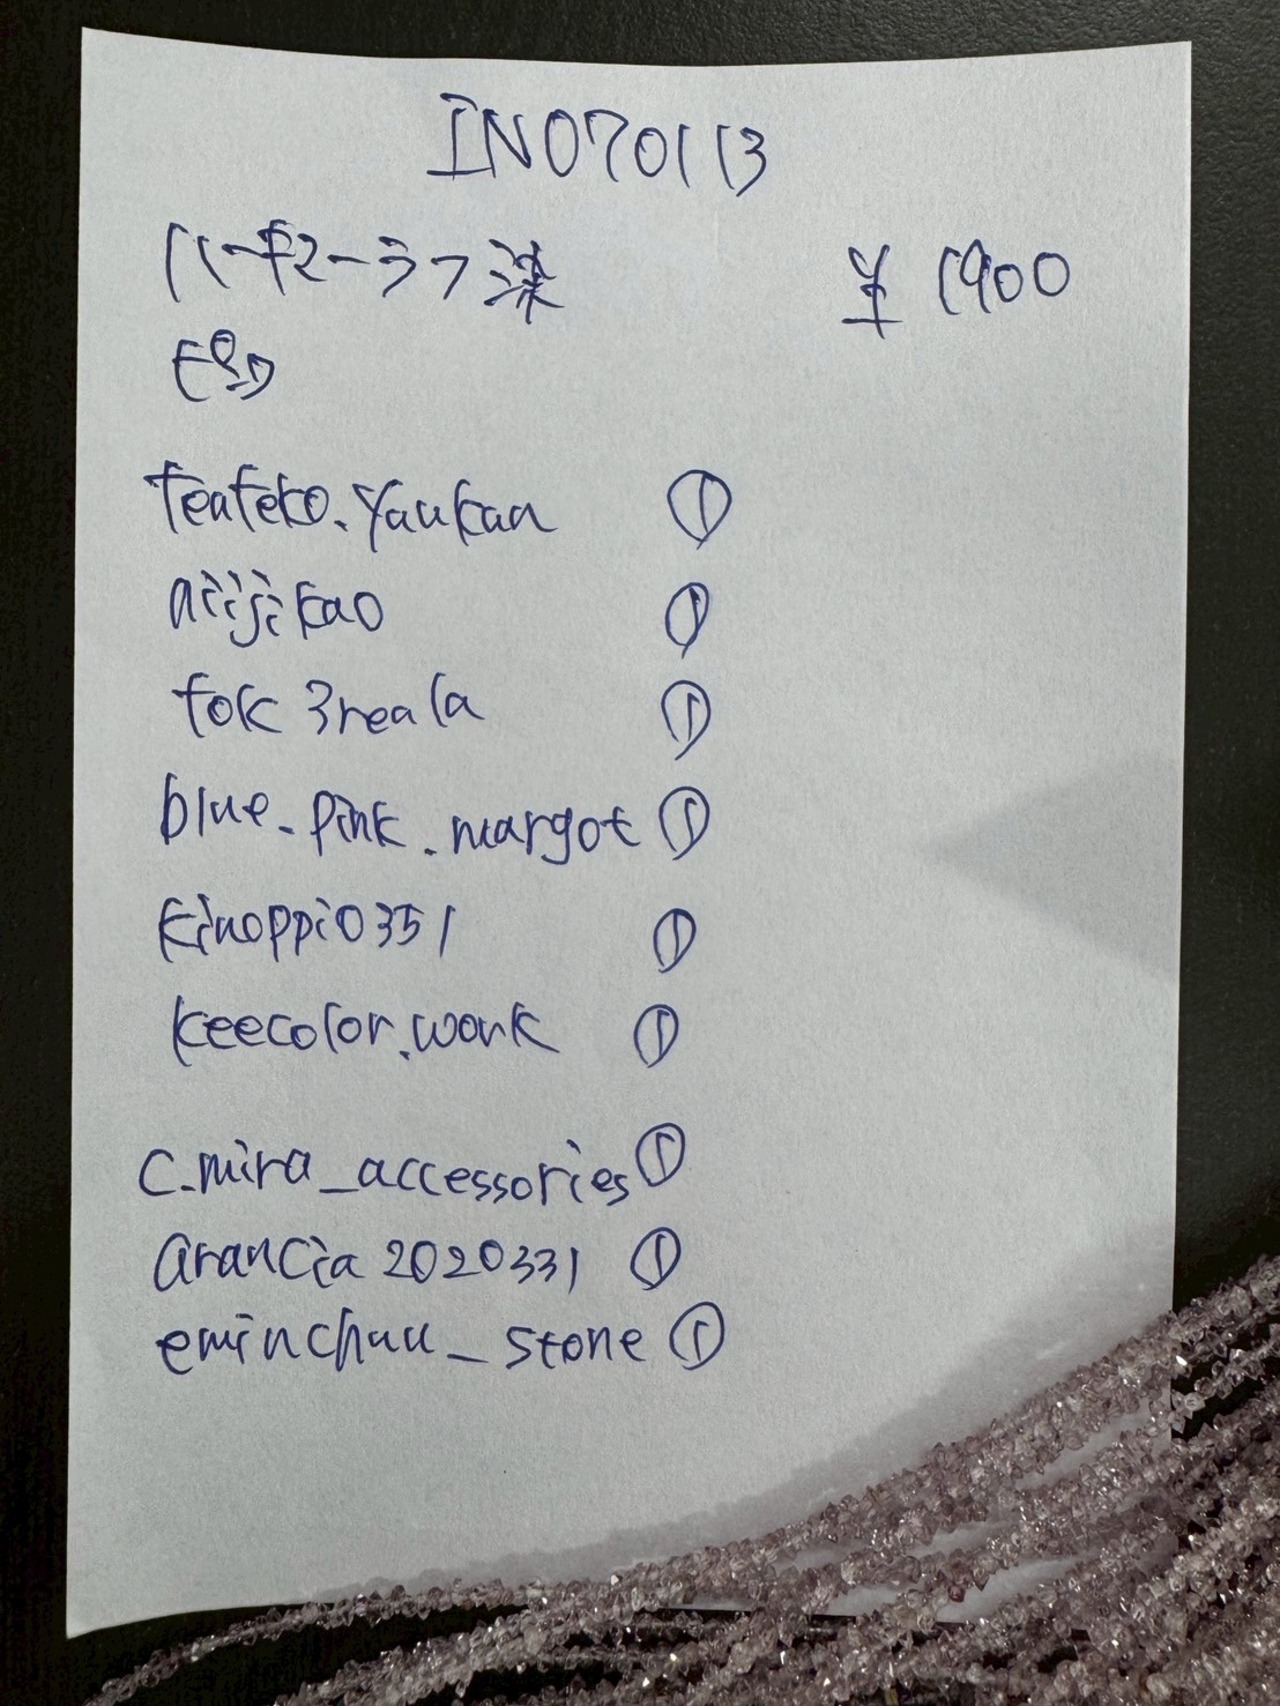 IN070113
ハーキマーラフ染 ¥1900
ピンク
teateko.yaukaa ①
aiijikao ①
tok3reala ①
blue_pink.margot ①
kinoppio351 ①
keecolor.work ①
c.mira_accessories ①
arancia2020331 ①
eminchuu_stone ①